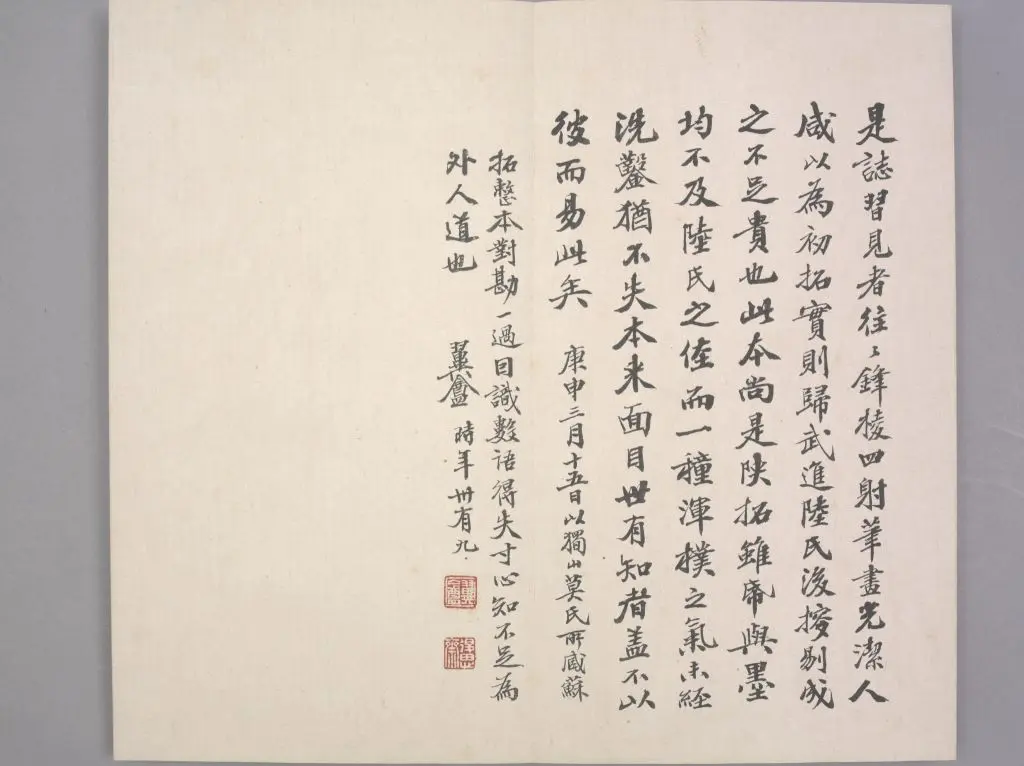 是誌習見者往〻鋒棱四射筆畫光潔人
咸以為初拓實則歸武進陸氏後撏剔成
之不足貴也此本尚是陝拓雖帋與墨
均不及陸氏之佳而一種渾樸之氣未經
洗鑿猶不失本来面目世有知者盖不以
彼而易此矣
庚申三月十五日以獨山莫氏所臧蘇
拓整本對勘一過因識數语得失寸心知不足為
外人道也
翼盦時年卅有九